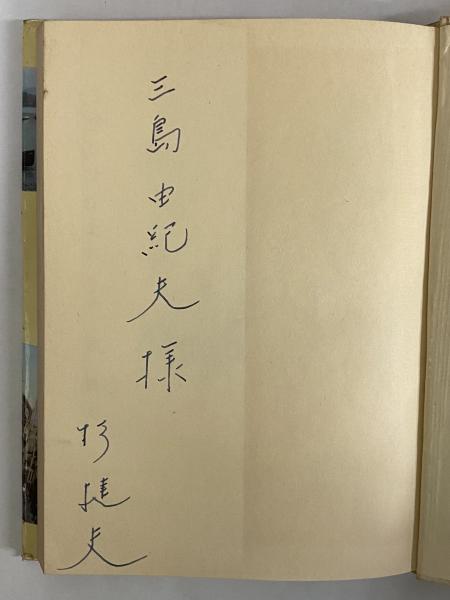 三島由紀夫様
杉捷夫